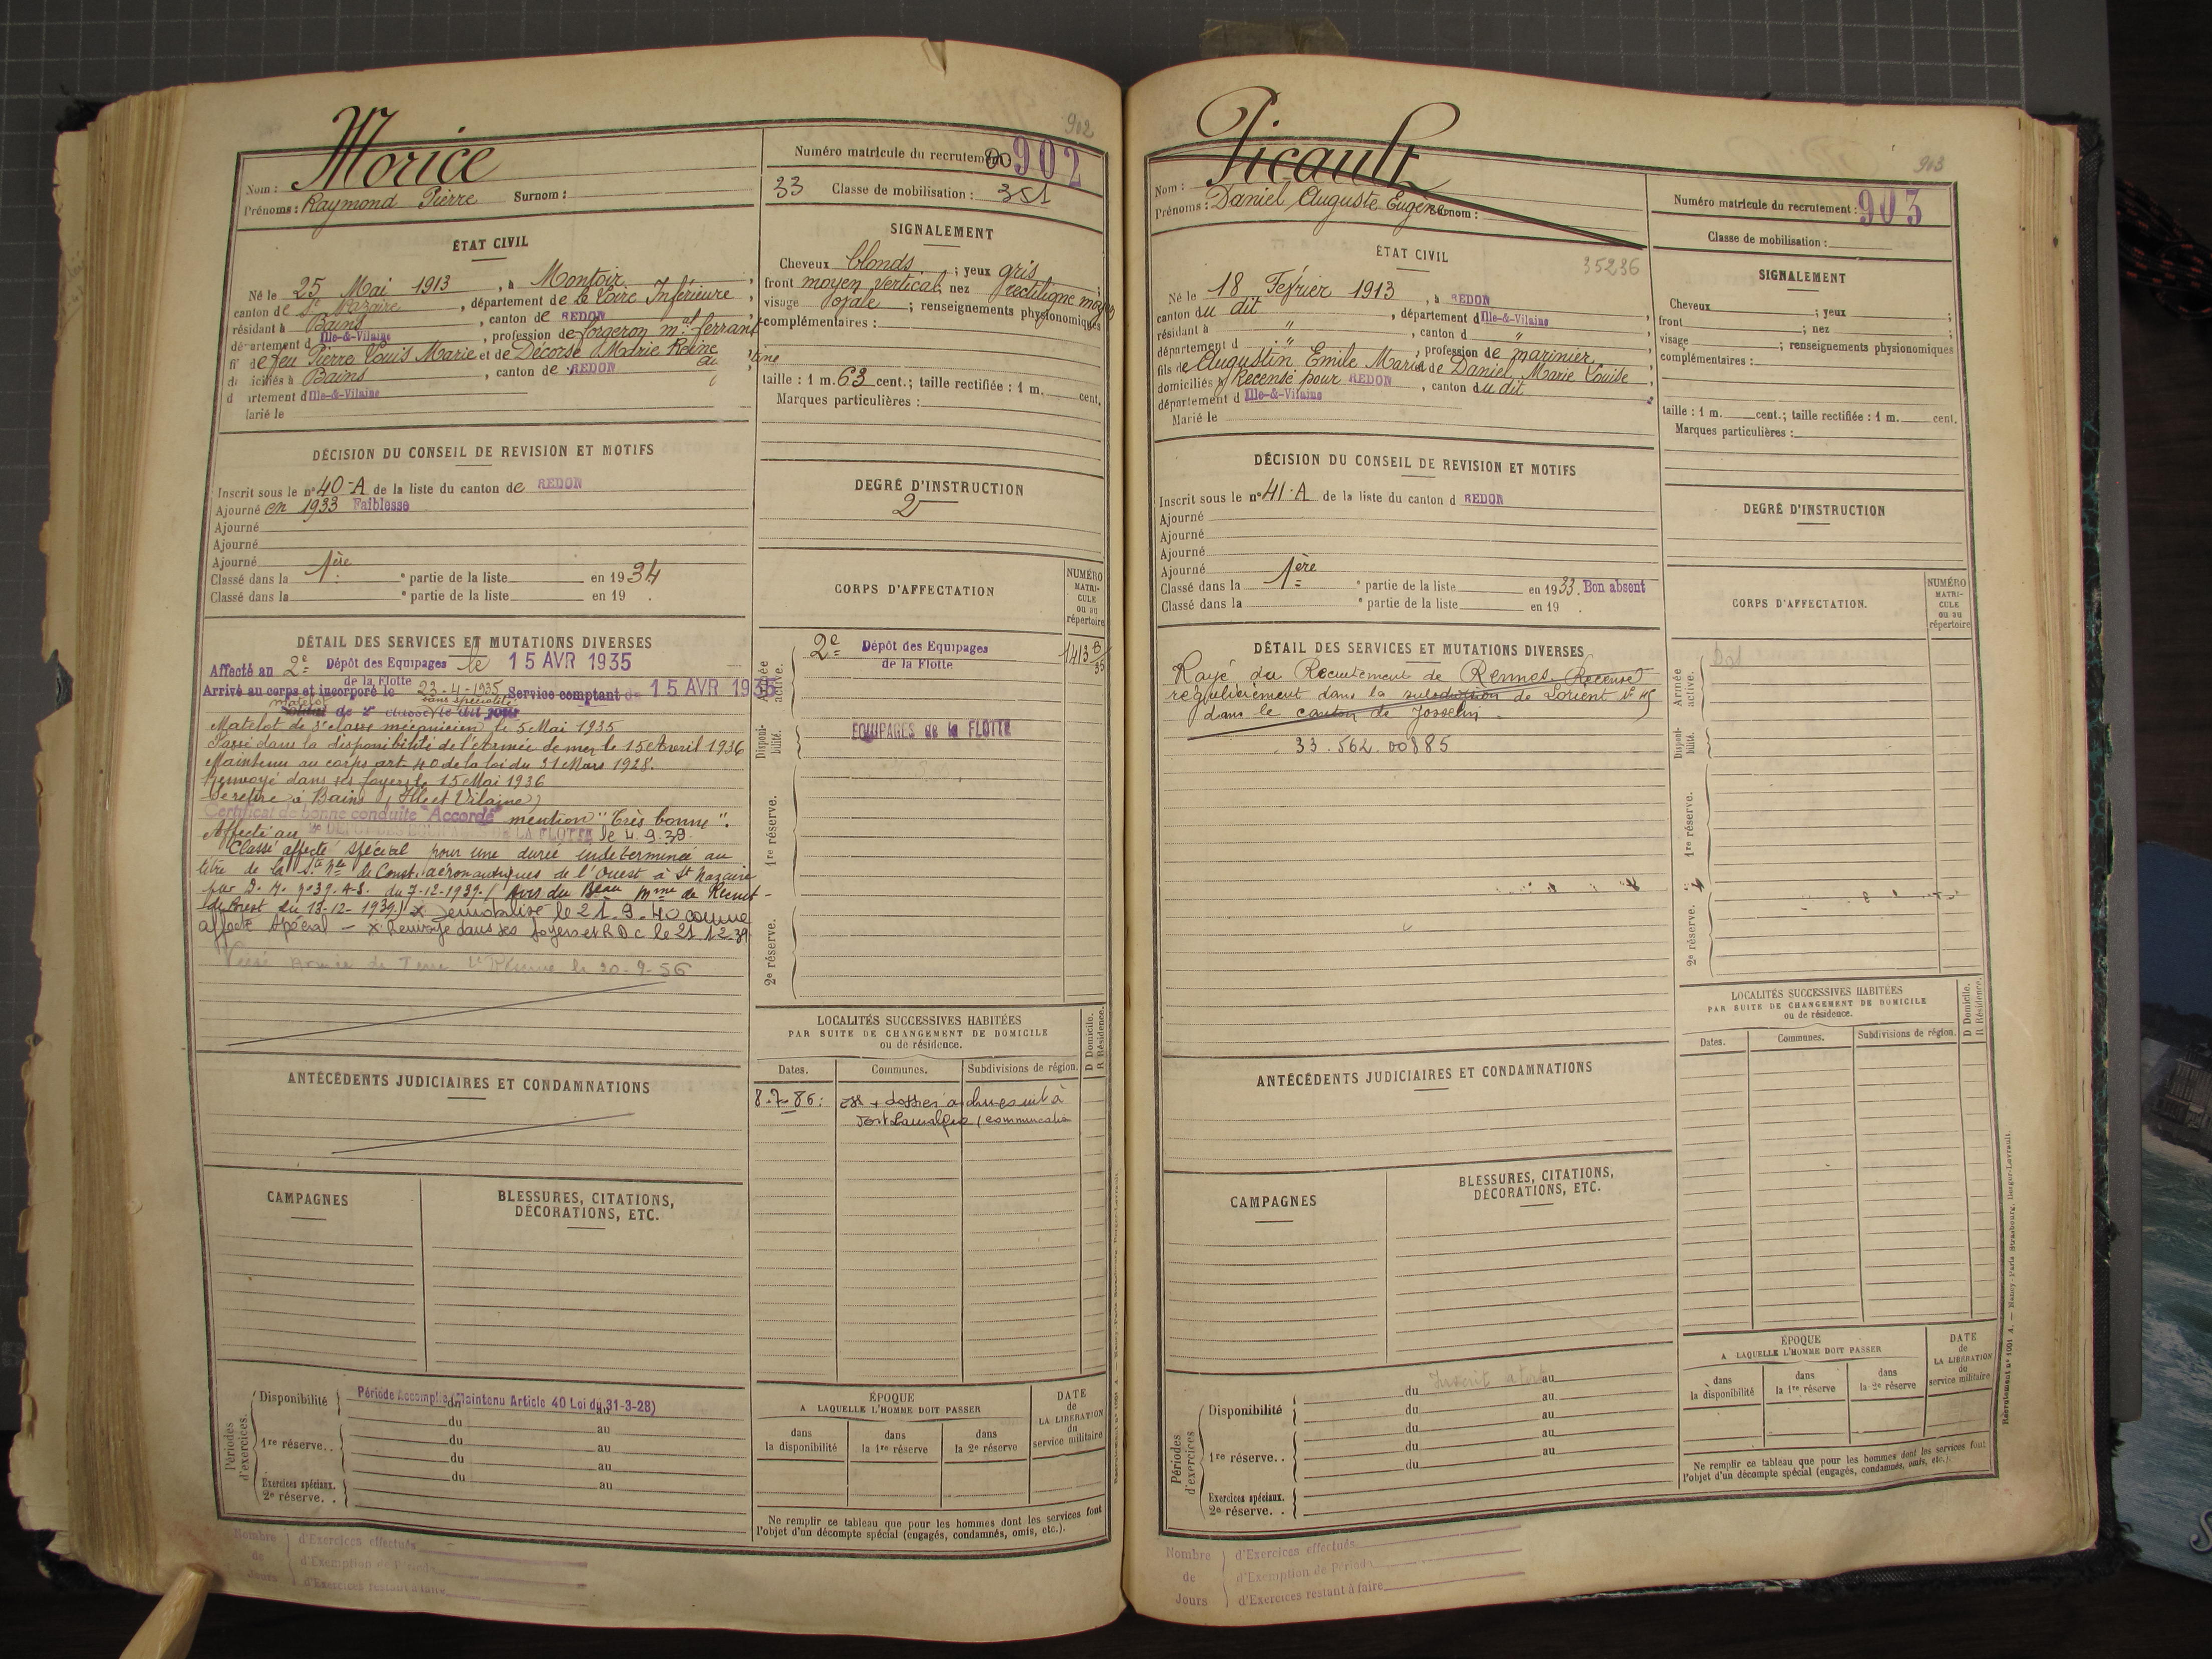 902
Morice
Nom :
Prénoms : Raymond Pierre Surnom :
Numéro matricule du recrutement 00902
33 Classe de mobilisation : 351
ÉTAT CIVIL
Né le 25 Mai 1913, à Montoir,
canton de St Nazaire, département de La Loire Inférieure,
résidant à Bains, canton de REDON
département d Ille-&-Vilaine, profession de forgeron mal ferrant
de feu Pierre Louis Marie et de Décorse Marie Reine
domiciliés à Bains, canton de REDON
département d Ille-&-Vilaine
Marié le
SIGNALEMENT
Cheveux blonds ; yeux gris ;
front moyen vertical ; nez rectiligne moyen
visage ovale ; renseignements physionomiques
complémentaires :
taille : 1 m. 63 cent. ; taille rectifiée : 1 m. cent.
Marques particulières :
DÉCISION DU CONSEIL DE REVISION ET MOTIFS
Inscrit sous le n° 40-A de la liste du canton de REDON
Ajourné en 1933 Faiblesse
Ajourné
Ajourné
Ajourné
Classé dans la 1ère e partie de la liste en 1934
Classé dans la e partie de la liste en 19 .
DEGRÉ D'INSTRUCTION
2
CORPS D'AFFECTATION
NUMÉRO MATRICULE ou au répertoire
Armée active.
2e Dépôt des Equipages
de la Flotte
1413 B/35
Disponibilité.
EQUIPAGES de la FLOTTE
1re réserve.
2e réserve.
DÉTAIL DES SERVICES ET MUTATIONS DIVERSES
Affecté au 2e Dépôt des Equipages de la Flotte le 15 AVR 1935
Arrivé au corps et incorporé le 23-4-1935 Service comptant du 15 AVR 1935
matelot sans spécialité
Soldat de 2e classe le dit jour
Matelot de 3e classe mécanicien le 5 Mai 1935
Passé dans la disponibilité de l'Armée de mer le 15 Avril 1936
Maintenu au corps art 40 de la loi du 31 Mars 1928.
Renvoyé dans ses foyers le 15 Mai 1936
Se retire à Bains (Ille et Vilaine)
Certificat de bonne conduite "Accordé" mention "Très bonne".
Affecté au DEPOT DES EQUIPAGES DE LA FLOTTE le 4.9.39
Classé affecté spécial pour une durée indéterminée au
titre de la Sté Nle de Const. aéronautiques de l'Ouest à St Nazaire
par D. M. n° 39. A-S. du 7-12-1939. (Avis du Beau Mme de Recrut-
de Brest du 13-12-1939) x Démobilisé le 21.9.40 comme
affecté spécial - x Renvoyé dans ses foyers et RDC le 21 12 39
Versé Armée de Terre Réserve le 20-9-56
LOCALITÉS SUCCESSIVES HABITÉES
PAR SUITE DE CHANGEMENT DE DOMICILE
ou de résidence.
Dates. Communes. Subdivisions de région. D Domicile. R Résidence.
8.7.86 : + dossier
ANTÉCÉDENTS JUDICIAIRES ET CONDAMNATIONS
CAMPAGNES
BLESSURES, CITATIONS,
DÉCORATIONS, ETC.
Périodes d'exercices.
Disponibilité Période Accomplie (Maintenu Article 40 Loi du 31-3-28)
du au
1re réserve. . du au
du au
du au
Exercices spéciaux.
2e réserve. .
ÉPOQUE
A LAQUELLE L'HOMME DOIT PASSER
dans la disponibilité
dans la 1re réserve
dans la 2e réserve
DATE de LA LIBÉRATION du service militaire
Ne remplir ce tableau que pour les hommes dont les services font
l'objet d'un décompte spécial (engagés, condamnés, omis, etc.).
Nombre de Jours
d'Exercices effectués
d'Exemption de Période
d'Exercices restant à faire
903
Picault
Nom :
Prénoms : Daniel Auguste Eugène Surnom :
Numéro matricule du recrutement : 903
Classe de mobilisation :
ÉTAT CIVIL
35236
Né le 18 Février 1913, à REDON
canton du dit, département d Ille-&-Vilaine
résidant à ", canton d "
département d ", profession de marinier
fils de Augustin Emile Marie et de Daniel Marie Louise
domiciliés à Recensé pour REDON, canton du dit
département d Ille-&-Vilaine
Marié le
SIGNALEMENT
Cheveux ; yeux ;
front ; nez ;
visage ; renseignements physionomiques
complémentaires :
taille : 1 m. cent. ; taille rectifiée : 1 m. cent.
Marques particulières :
DÉCISION DU CONSEIL DE REVISION ET MOTIFS
Inscrit sous le n° 41-A de la liste du canton d REDON
Ajourné
Ajourné
Ajourné
Ajourné
Classé dans la 1ère e partie de la liste en 1933. Bon absent
Classé dans la e partie de la liste en 19 .
DEGRÉ D'INSTRUCTION
CORPS D'AFFECTATION.
NUMÉRO MATRICULE ou au répertoire
Armée active.
Disponibilité.
1re réserve.
2e réserve.
DÉTAIL DES SERVICES ET MUTATIONS DIVERSES
Rayé du Recrutement de Rennes. Recensé
régulièrement dans la subdivision de Lorient
dans le canton de Josselin.
33.562.00885
LOCALITÉS SUCCESSIVES HABITÉES
PAR SUITE DE CHANGEMENT DE DOMICILE
ou de résidence.
Dates. Communes. Subdivisions de région. D Domicile. R Résidence.
ANTÉCÉDENTS JUDICIAIRES ET CONDAMNATIONS
CAMPAGNES
BLESSURES, CITATIONS,
DÉCORATIONS, ETC.
Périodes d'exercices
Inscrit à tort
Disponibilité du au
du au
1re réserve. . du au
du au
du au
Exercices spéciaux.
2e réserve. .
ÉPOQUE
A LAQUELLE L'HOMME DOIT PASSER
dans la disponibilité
dans la 1re réserve
dans la 2e réserve
DATE de LA LIBÉRATION du service militaire
Ne remplir ce tableau que pour les hommes dont les services font
l'objet d'un décompte spécial (engagés, condamnés, omis, etc.).
Recrutement n° 1001 A. — Nancy-Paris-Strasbourg, Berger-Levrault.
Nombre de Jours
d'Exercices effectués
d'Exemption de Période
d'Exercices restant à faire